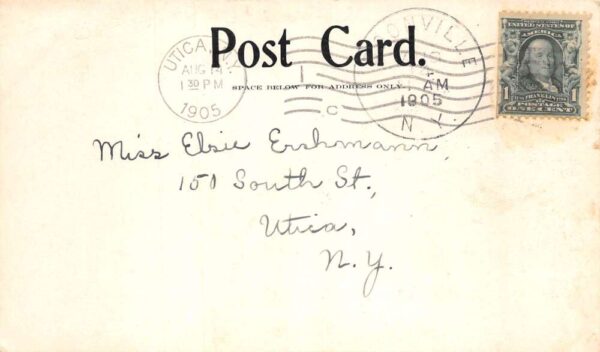 Post Card.
SPACE BELOW FOR ADDRESS ONLY
UTICA, N.Y.
AUG 14
1 30 PM
1905
1
C
AM
1905
N.Y.
UNITED STATES OF
AMERICA
FRANKLIN
1 POSTAGE 1
ONE CENT
Miss Elsie Ershmann,
150 South St.,
Utica,
N.Y.